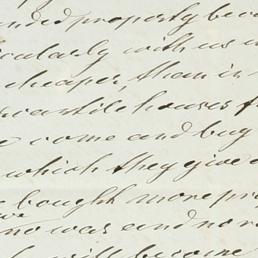 nded property beco
icularly with us in
cheaper, than in
rcantile houses f
e come and buy
which they give
bought more pro
we
no was and no
will become